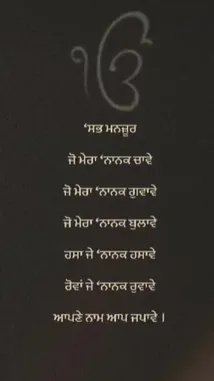 ੴ
‘ਸਭ ਮਨਜ਼ੂਰ
ਜੋ ਮੇਰਾ ‘ਨਾਨਕ ਚਾਵੇ
ਜੋ ਮੇਰਾ ‘ਨਾਨਕ ਗੁਵਾਵੇ
ਜੋ ਮੇਰਾ ‘ਨਾਨਕ ਬੁਲਾਵੇ
ਹਸਾ ਜੇ ‘ਨਾਨਕ ਹਸਾਵੇ
ਰੋਵਾਂ ਜੇ ‘ਨਾਨਕ ਰੁਵਾਵੇ
ਆਪਣੇ ਨਾਮ ਆਪ ਜਪਾਵੇ ।